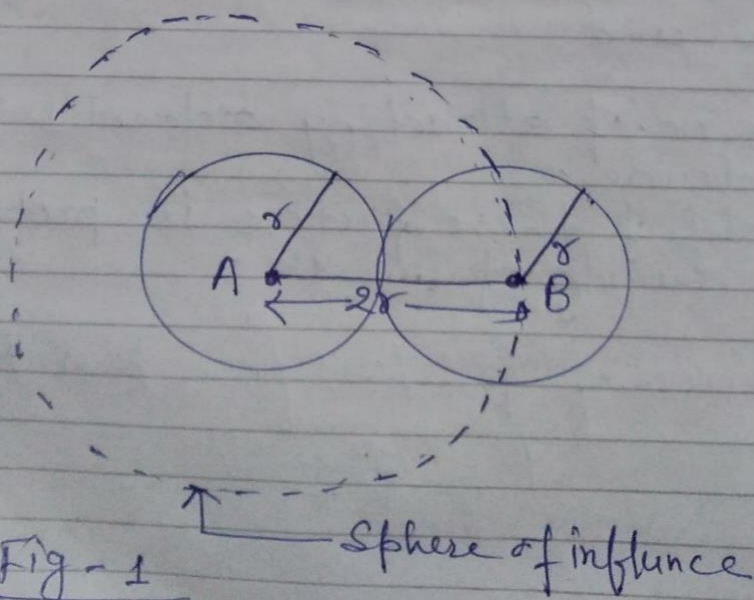 r
r
A
B
2r
Sphere of influnce
Fig - 1